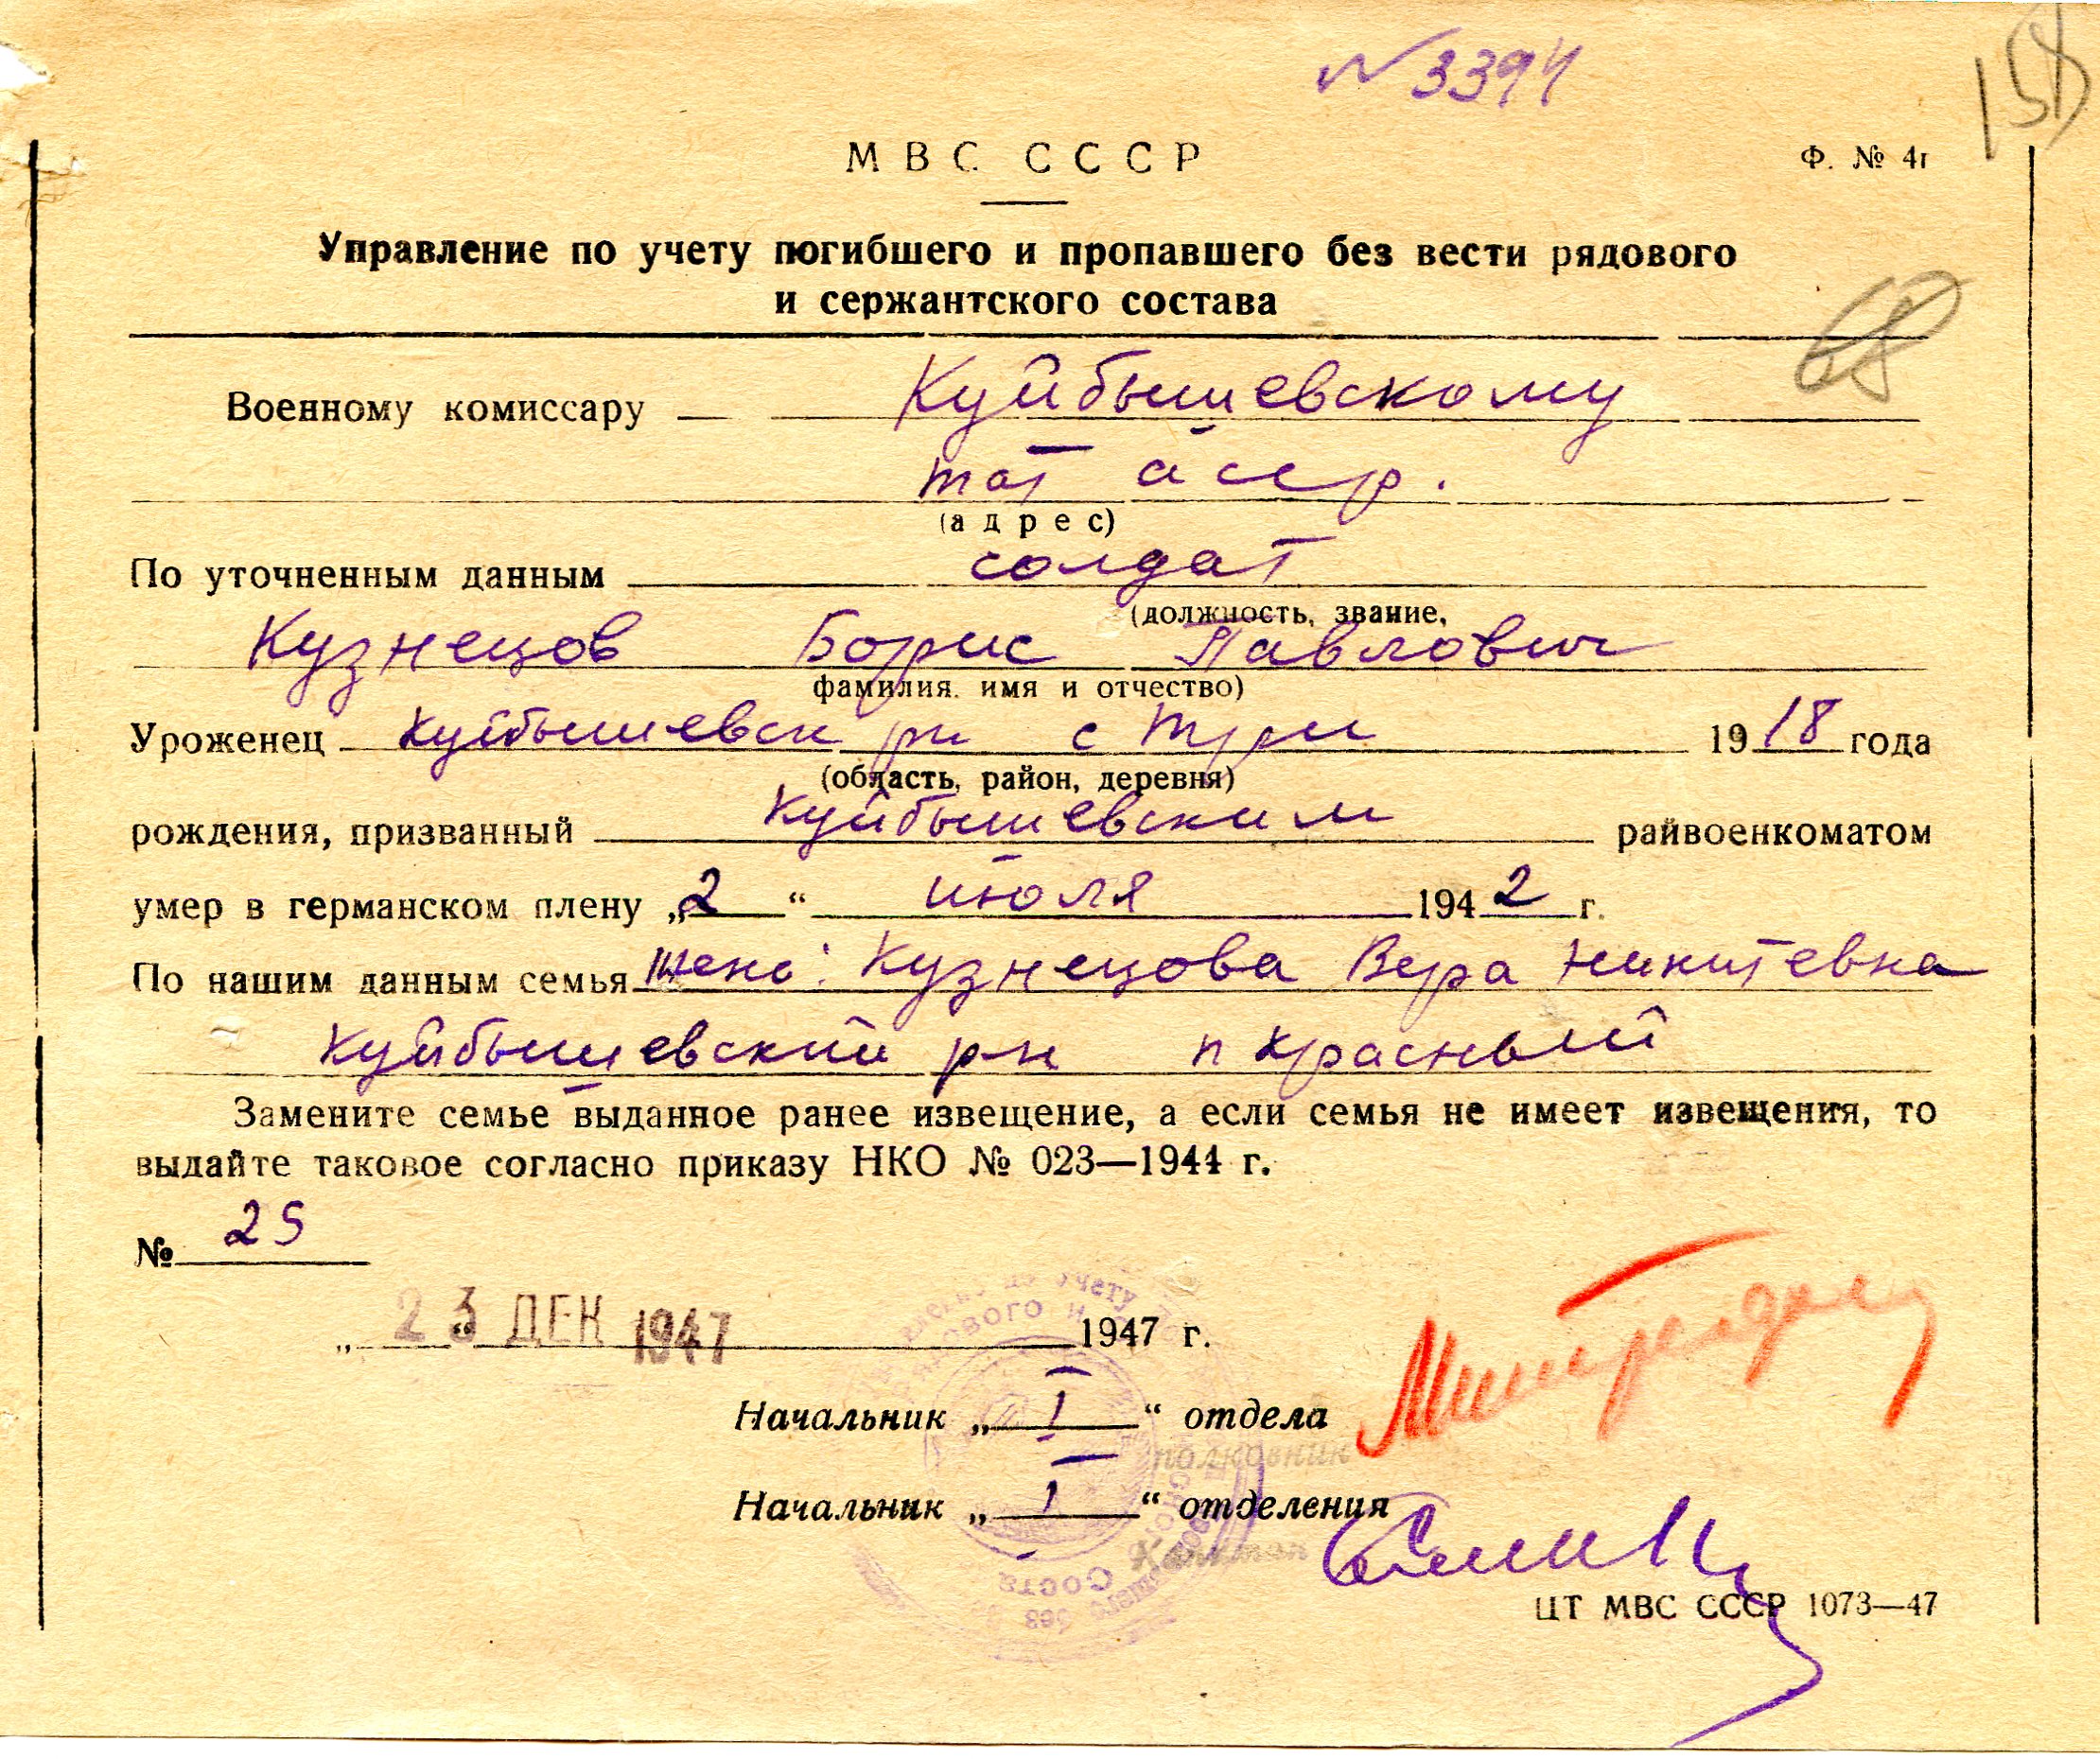 № 3394
158
МВС СССР
Ф. № 4г
Управление по учету погибшего и пропавшего без вести рядового
и сержантского состава
68
Военному комиссару Куйбышевскому
тат асср.
(адрес)
По уточненным данным солдат
(должность, звание,
Кузнецов Борис Павлович
фамилия. имя и отчество)
Уроженец Куйбышевск рн с Три 1918 года
(область, район, деревня)
рождения, призванный Куйбышевским райвоенкоматом
умер в германском плену „2“ июля 1942 г.
По нашим данным семья жена: Кузнецова Вера Никитевна
Куйбышевский рн п Красный
Замените семье выданное ранее извещение, а если семья не имеет извещения, то
выдайте таковое согласно приказу НКО № 023—1944 г.
№ 25
„ 23 ДЕК 1947 1947 г.
Начальник „I“ отдела
полковник
Начальник „I“ отделения
Капитан
ЦТ МВС СССР 1073—47